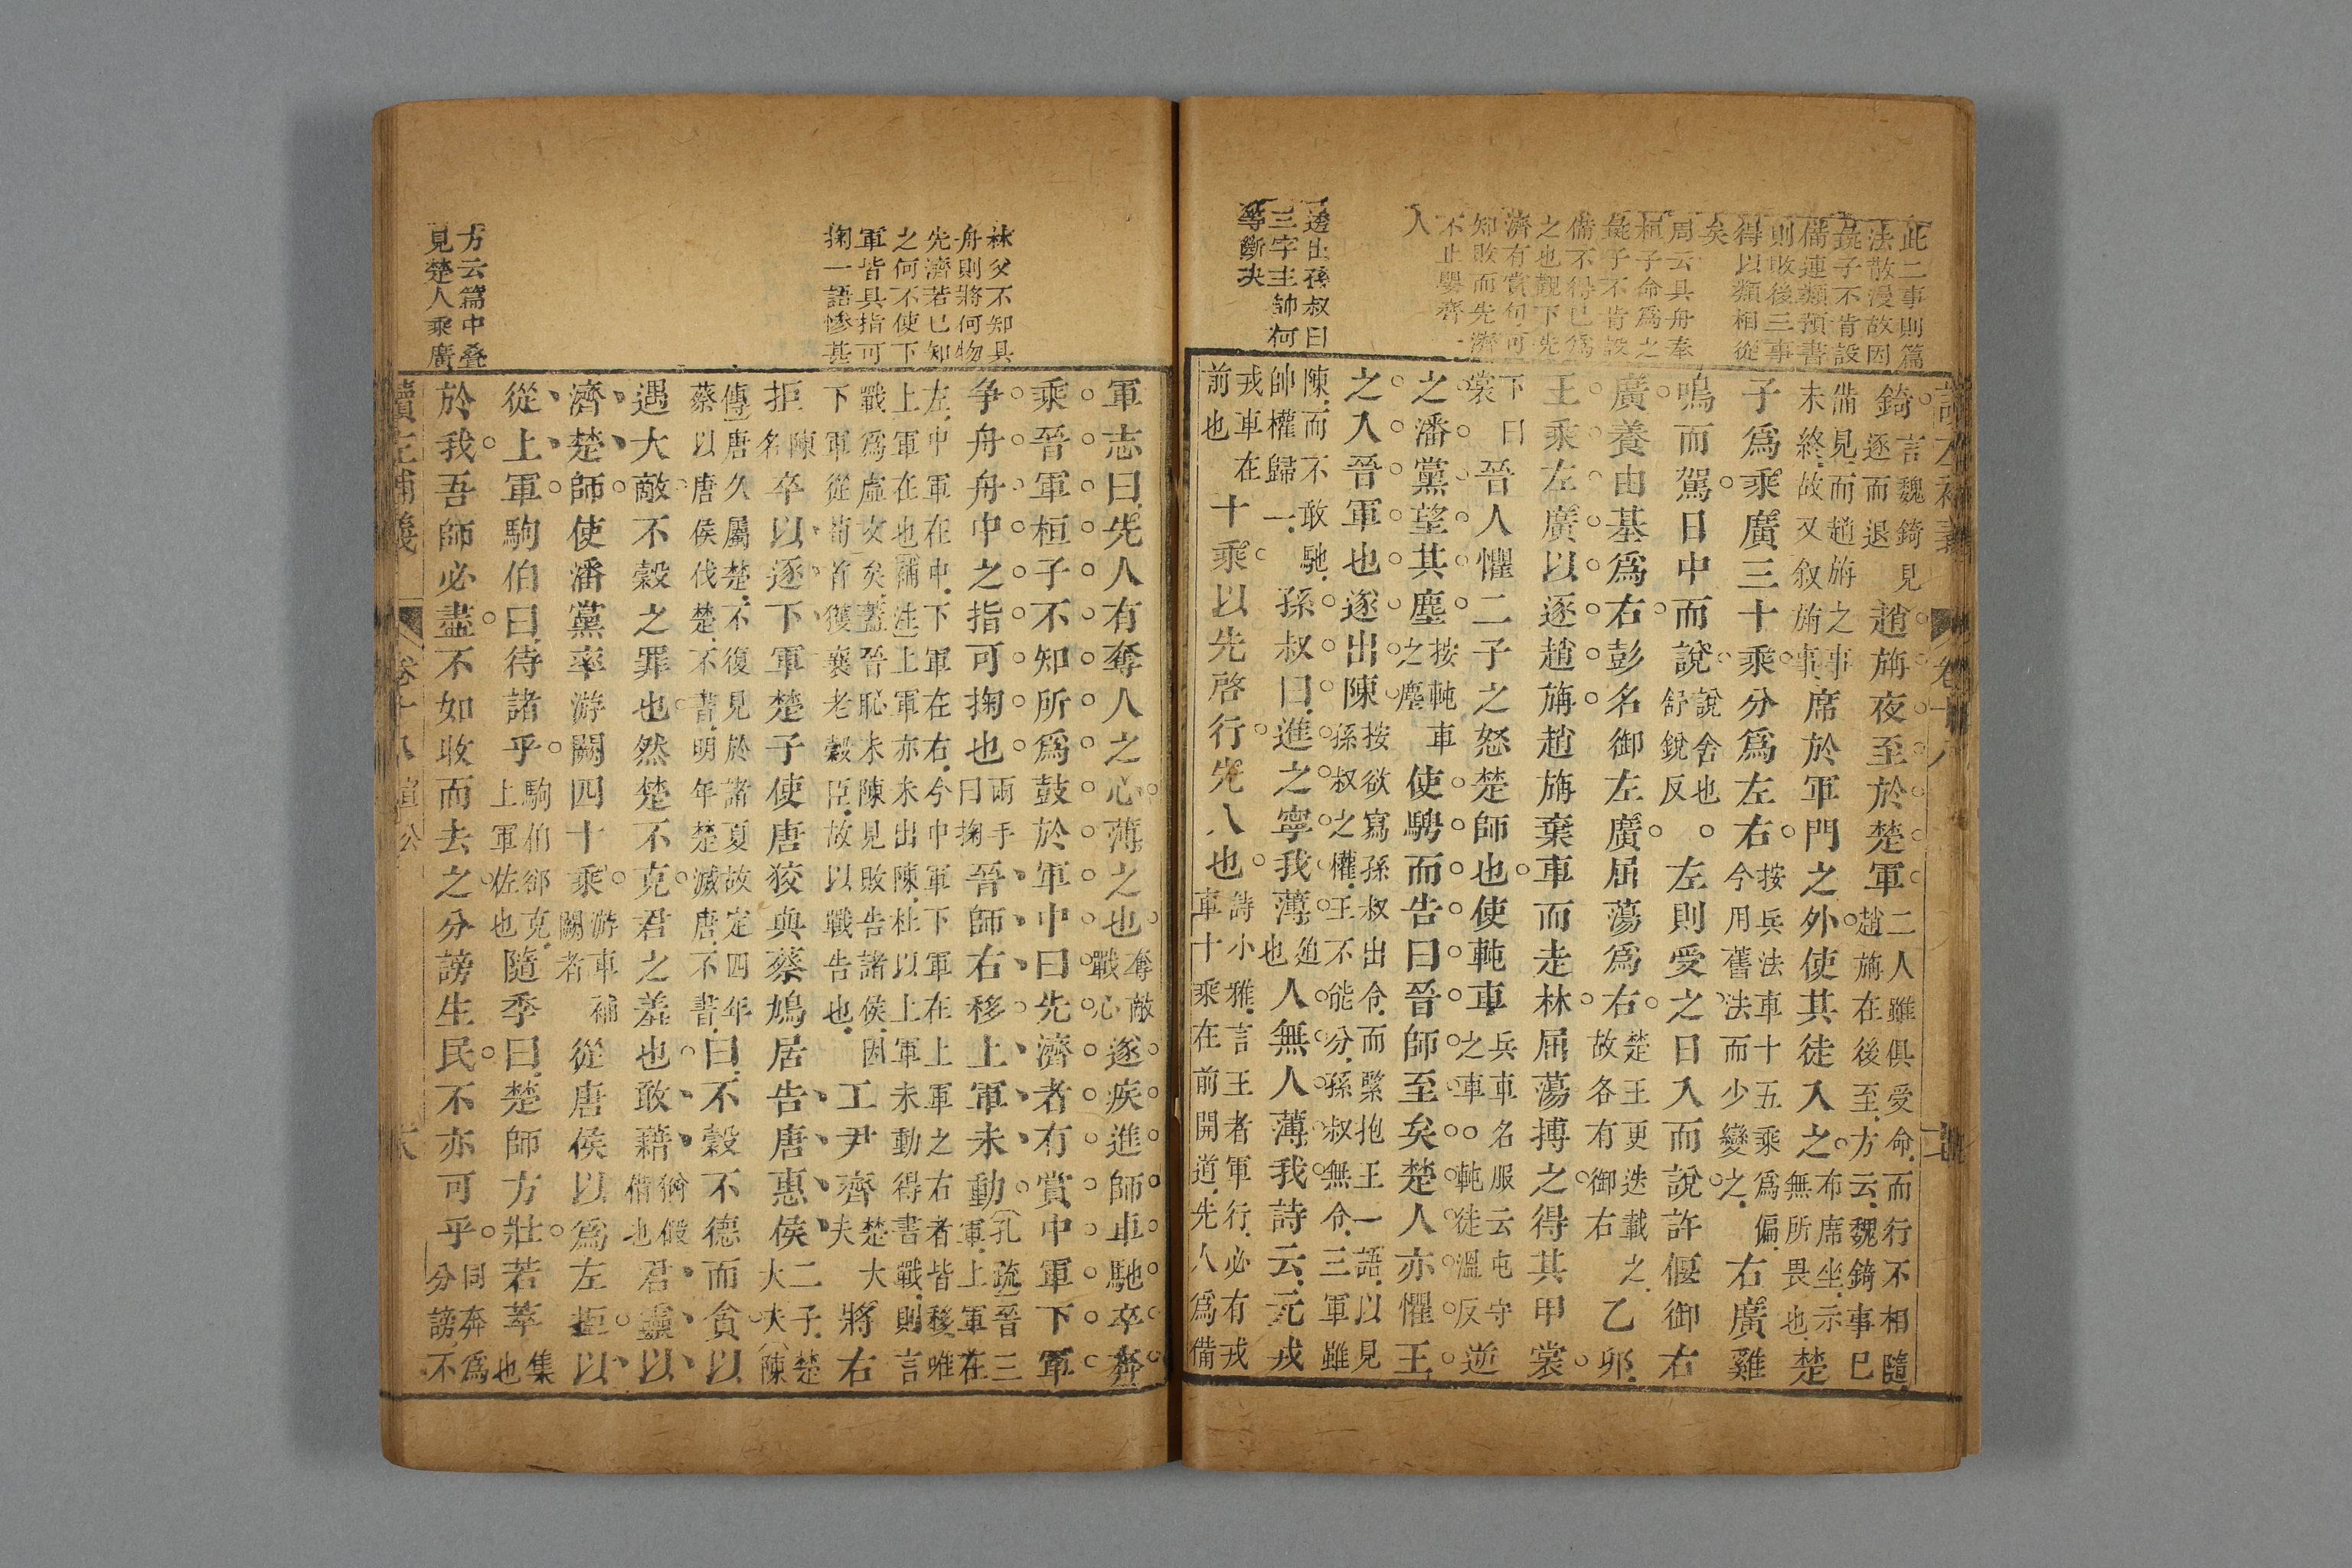 此二事則篇
法散漫故因
彘子不肯設
備連類預書
則敗後三事
得以類相從
矣
周云具舟奉
桓子命爲之
彘子不肯設
備不得已爲
之也觀下先
濟有賞句可
知敗而先濟
不止嬰齊一
人
透出孫叔曰
三字主帥何
等斷决
錡言魏錡見逐而退趙旃夜至於楚軍二人雖俱受命而行不相隨趙旃在後至方云魏錡事已
備見而趙旃之事未終故又叙旃事席於軍門之外使其徒入之布席坐示無所畏也楚
子爲乘廣三十乘分爲左右按兵法車十五乘爲偏今用舊法而少變之右廣雞
鳴而駕日中而說說舍也舒銳反左則受之日入而說許偃御右
廣養由基爲右彭名御左廣屈蕩爲右楚王更迭載之故各有御右乙卯
王乘左廣以逐趙旃趙旃棄車而走林屈蕩搏之得其甲裳
下曰裳晉人懼二子之怒楚師也使軘車兵車名服云屯守之車軘徒溫反逆
之潘黨望其塵按軘車之塵使騁而告曰晉師至矣楚人亦懼王
之入晉軍也遂出陳按欲寫孫叔出令而緊抱王一語以見孫叔之權王不能分孫叔無令三軍雖
陳而不敢馳帥權歸一孫叔曰進之寧我薄迫也人無人薄我詩云元戎
戎車在前也十乘以先啓行先人也詩小雅言王者軍行必有戎車十乘在前開道先人爲備
讀左補義 卷十八
林父不知具
舟則將何物
先濟若已知
之何不使下
軍皆具指可
掬一語慘甚
方云篇中叠
見楚人乘廣
軍志曰先人有奪人之心薄之也奪敵戰心遂疾進師車馳卒奔
乘晉軍桓子不知所爲鼓於軍中曰先濟者有賞中軍下軍
争舟舟中之指可掬也兩手曰掬晉師右移上軍未動孔疏晉三軍上軍在
左中軍在中下軍在右今中軍下軍在上軍之右者皆移唯上軍在也補注上軍亦未出陳杜以上軍未動得書戰則言
戰爲虛文矣蓋晉恥未陳見敗告諸侯因下軍從荀首獲襄老穀臣故以戰告也工尹齊楚大夫將右
拒陳名卒以逐下軍楚子使唐狡與蔡鳩居告唐惠侯二子楚大夫陳
傳唐久屬楚不復見於諸夏故定四年蔡以唐侯伐楚不書明年楚滅唐不書曰不穀不德而貪以
遇大敵不穀之罪也然楚不克君之羞也敢藉猶假借也君靈以
濟楚師使潘黨率游闕四十乘游車補闕者從唐侯以爲左拒以
從上軍駒伯曰待諸乎駒伯郤克上軍佐也隨季曰楚師方壯若萃集也
於我吾師必盡不如收而去之分謗生民不亦可乎同奔爲分謗不
讀左補義 卷十八 宣公